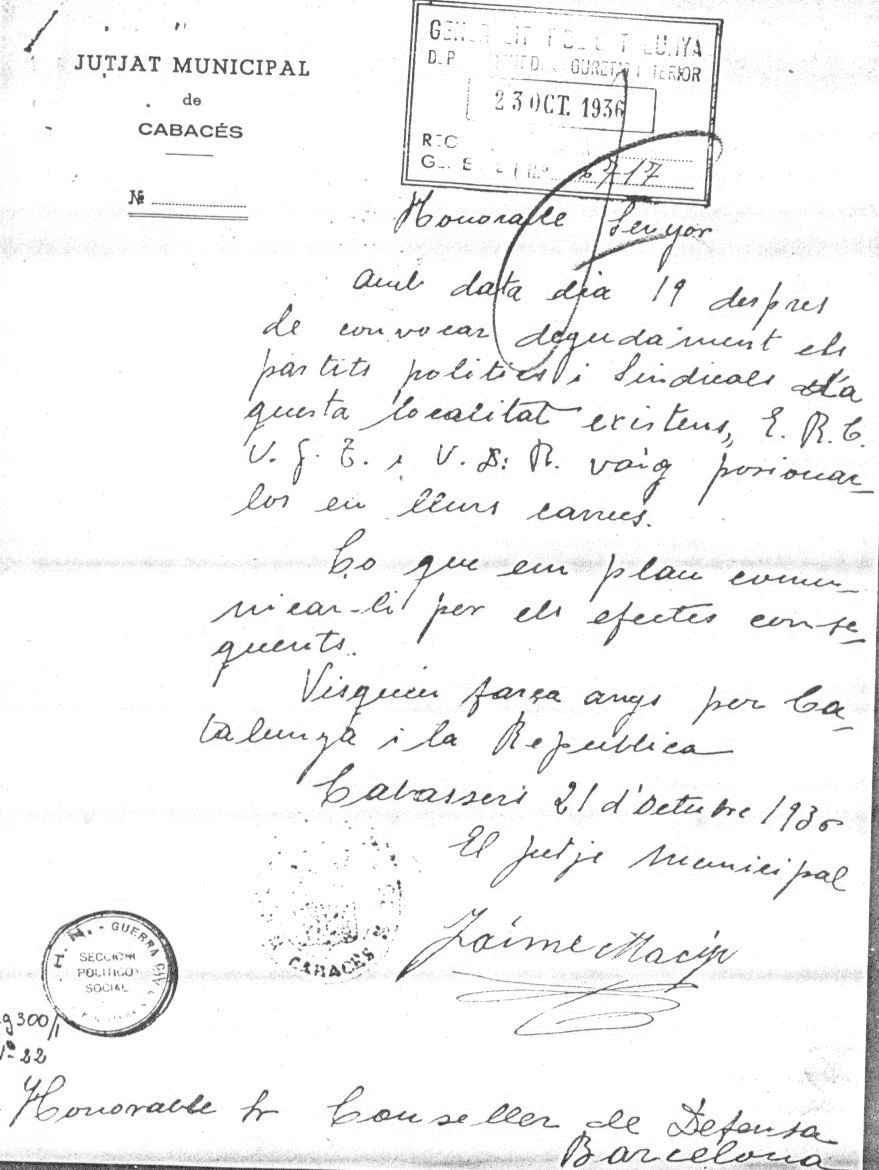 JUTJAT MUNICIPAL
de
CABACÉS
Nº
23 OCT. 1936
717
Honorable Senyor
Amb data dia 19 despres
de convocar degudament els
partits politics i Sindicals d'a
questa localitat existens, E. R. C.
U. G. T. i U. D: R. vaig posionar-
los en llurs carrecs.
Lo que em plau comu-
nicar-li per els efectes conse-
quents.
Visqueu força anys per Ca-
talunya i la Republica
Cabassers 21 d'Octubre 1936
El jutje Municipal
Jaime Macip
CABACÉS
H. N. - GUERRA CIVIL
SECCION
POLITICO
SOCIAL
g 300/1
Nº 22
Honorable Sr Conseller de Defensa
Barcelona